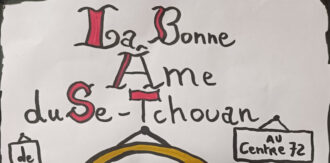 La Bonne
Âme
du Se-Tchouan
de
AU
Centre 72